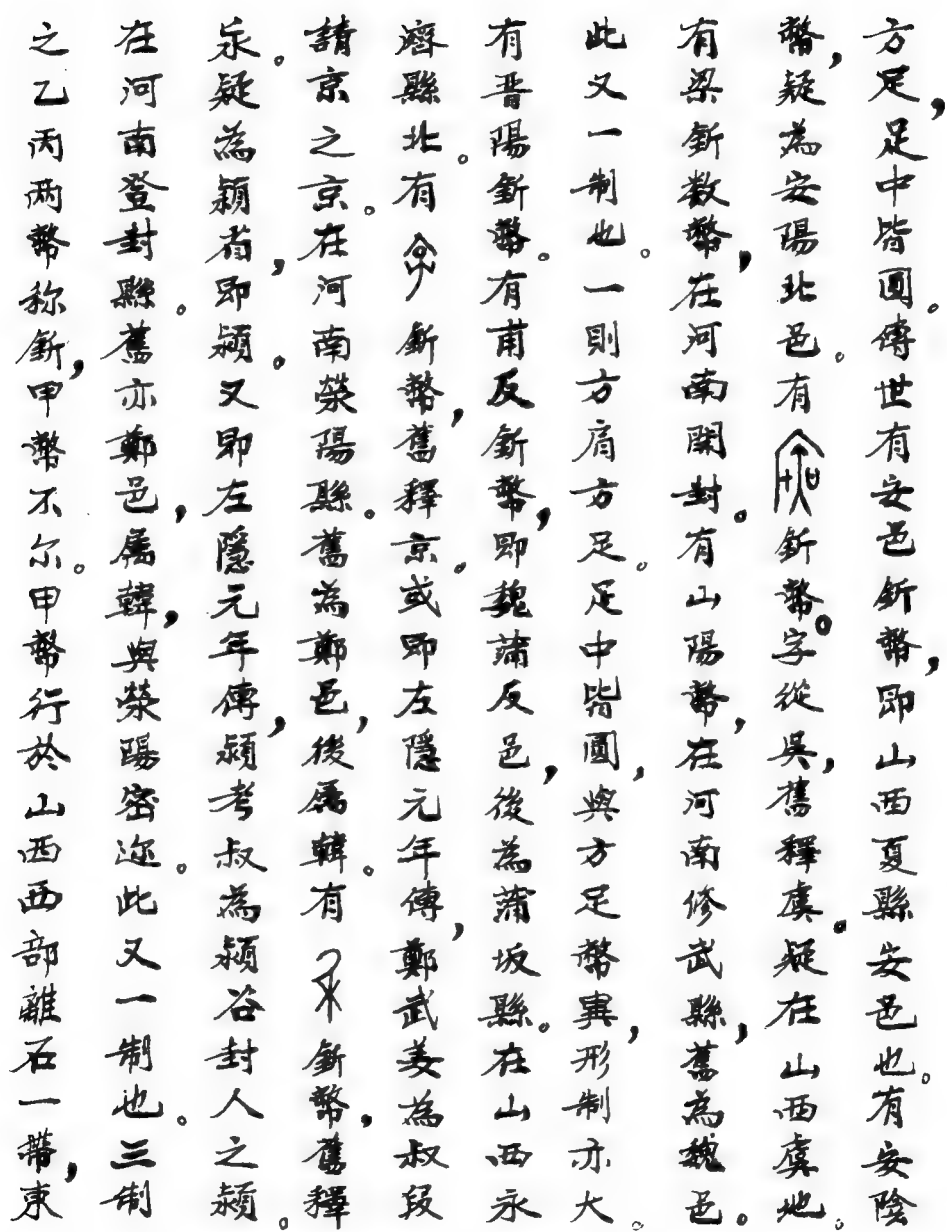 方足，足中皆圓。傳世有安邑釿幣，即山西夏縣安邑也。有安陰
幣，疑為安陽北邑。有釿幣。字從吳，舊釋虞。疑在山西虞地。
有梁釿数幣，在河南開封。有山陽幣，在河南修武縣，舊為魏邑。
此又一制也。一則方肩方足。足中皆圓，與方足幣異，形制亦大。
有晋陽釿幣。有甫反釿幣，即魏蒲反邑，後為蒲坂縣。在山西永
濟縣北。有釿幣，舊釋京。或即左隱元年傳，鄭武姜為叔段
請京之京。在河南滎陽縣。舊為鄭邑，後屬韓。有釿幣，舊釋
永。疑為潁省，即潁。又即左隱元年傳，潁考叔為潁谷封人之潁。
在河南登封縣。舊亦鄭邑，屬韓，與滎陽密迩。此又一制也。三制
之乙丙两幣称釿，甲幣不尔。甲幣行於山西西部離石一帶，東